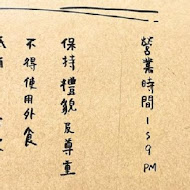 營業時間 1-9 PM
保持禮貌及尊重
不得使用外食